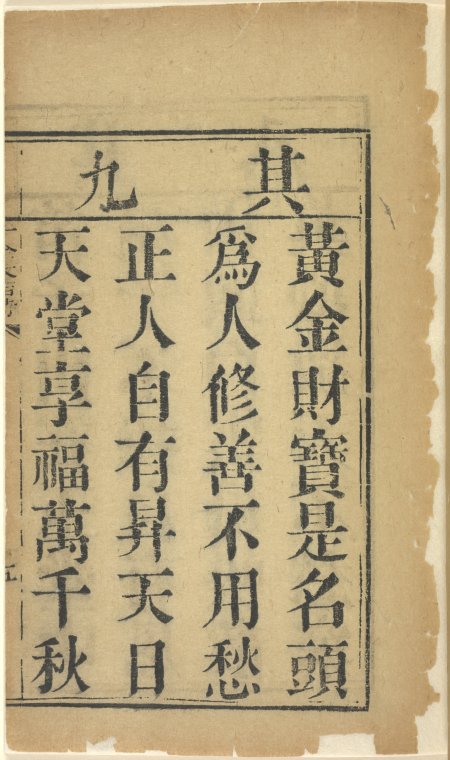 其九
黃金財寶是名頭
爲人修善不用愁
正人自有昇天日
天堂享福萬千秋